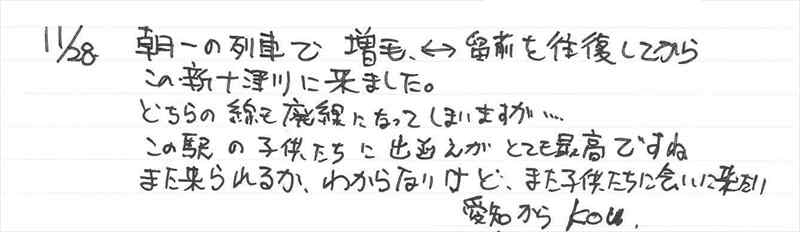 11/28 朝一の列車で 増毛、↔留萌を往復してから
この新十津川に来ました。
どちらの線も廃線になってしまいますが…
この駅の子供たちに出迎えがとても最高ですね
また来られるか、わからないけど、また子供たちに会いに来たい
愛知から Kou.